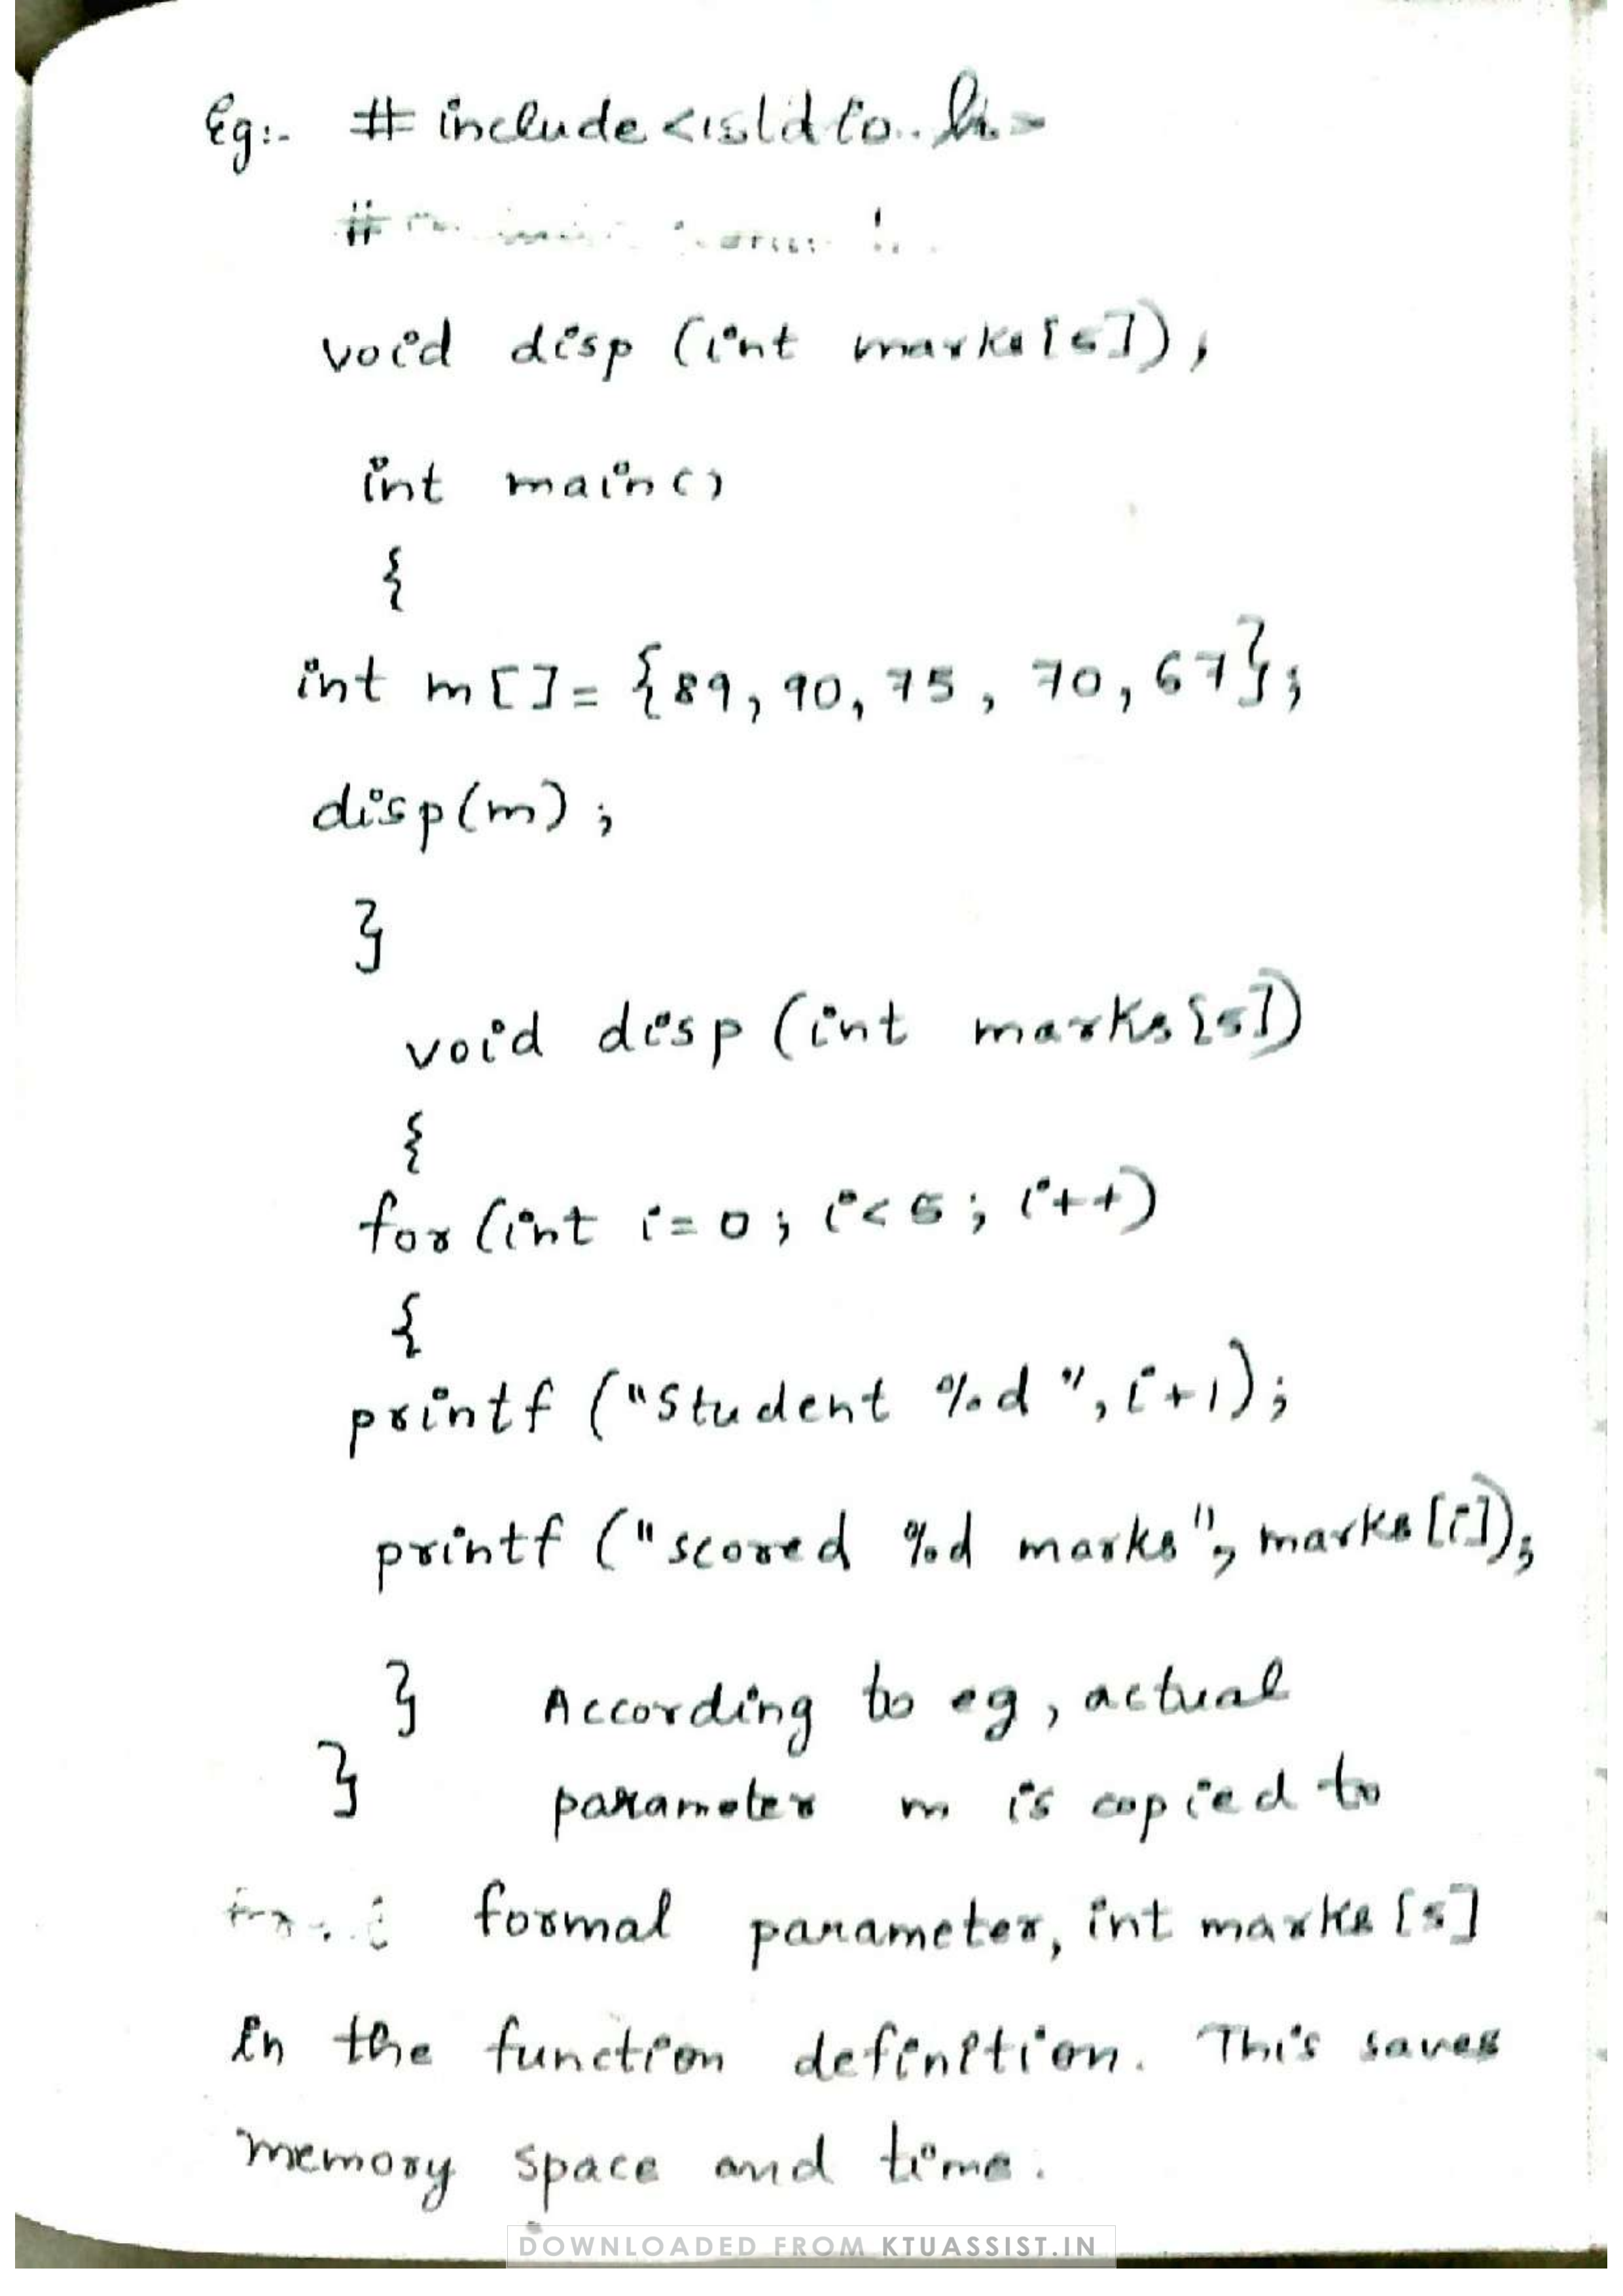 Eg:- #include<stdio.h>
#
void disp (int marks[5]);
int main()
{
int m[]= {89, 90, 75, 70, 67};
disp(m);
}
void disp (int marks[5])
{
for (int i=0; i<5; i++)
{
printf ("Student %d ", i+1);
printf ("scored %d marks", marks[i]);
} According to eg, actual
} parameter m is copied to
formal parameter, int marks [5]
in the function definition. This saves
memory space and time.
DOWNLOADED FROM KTUASSIST.IN